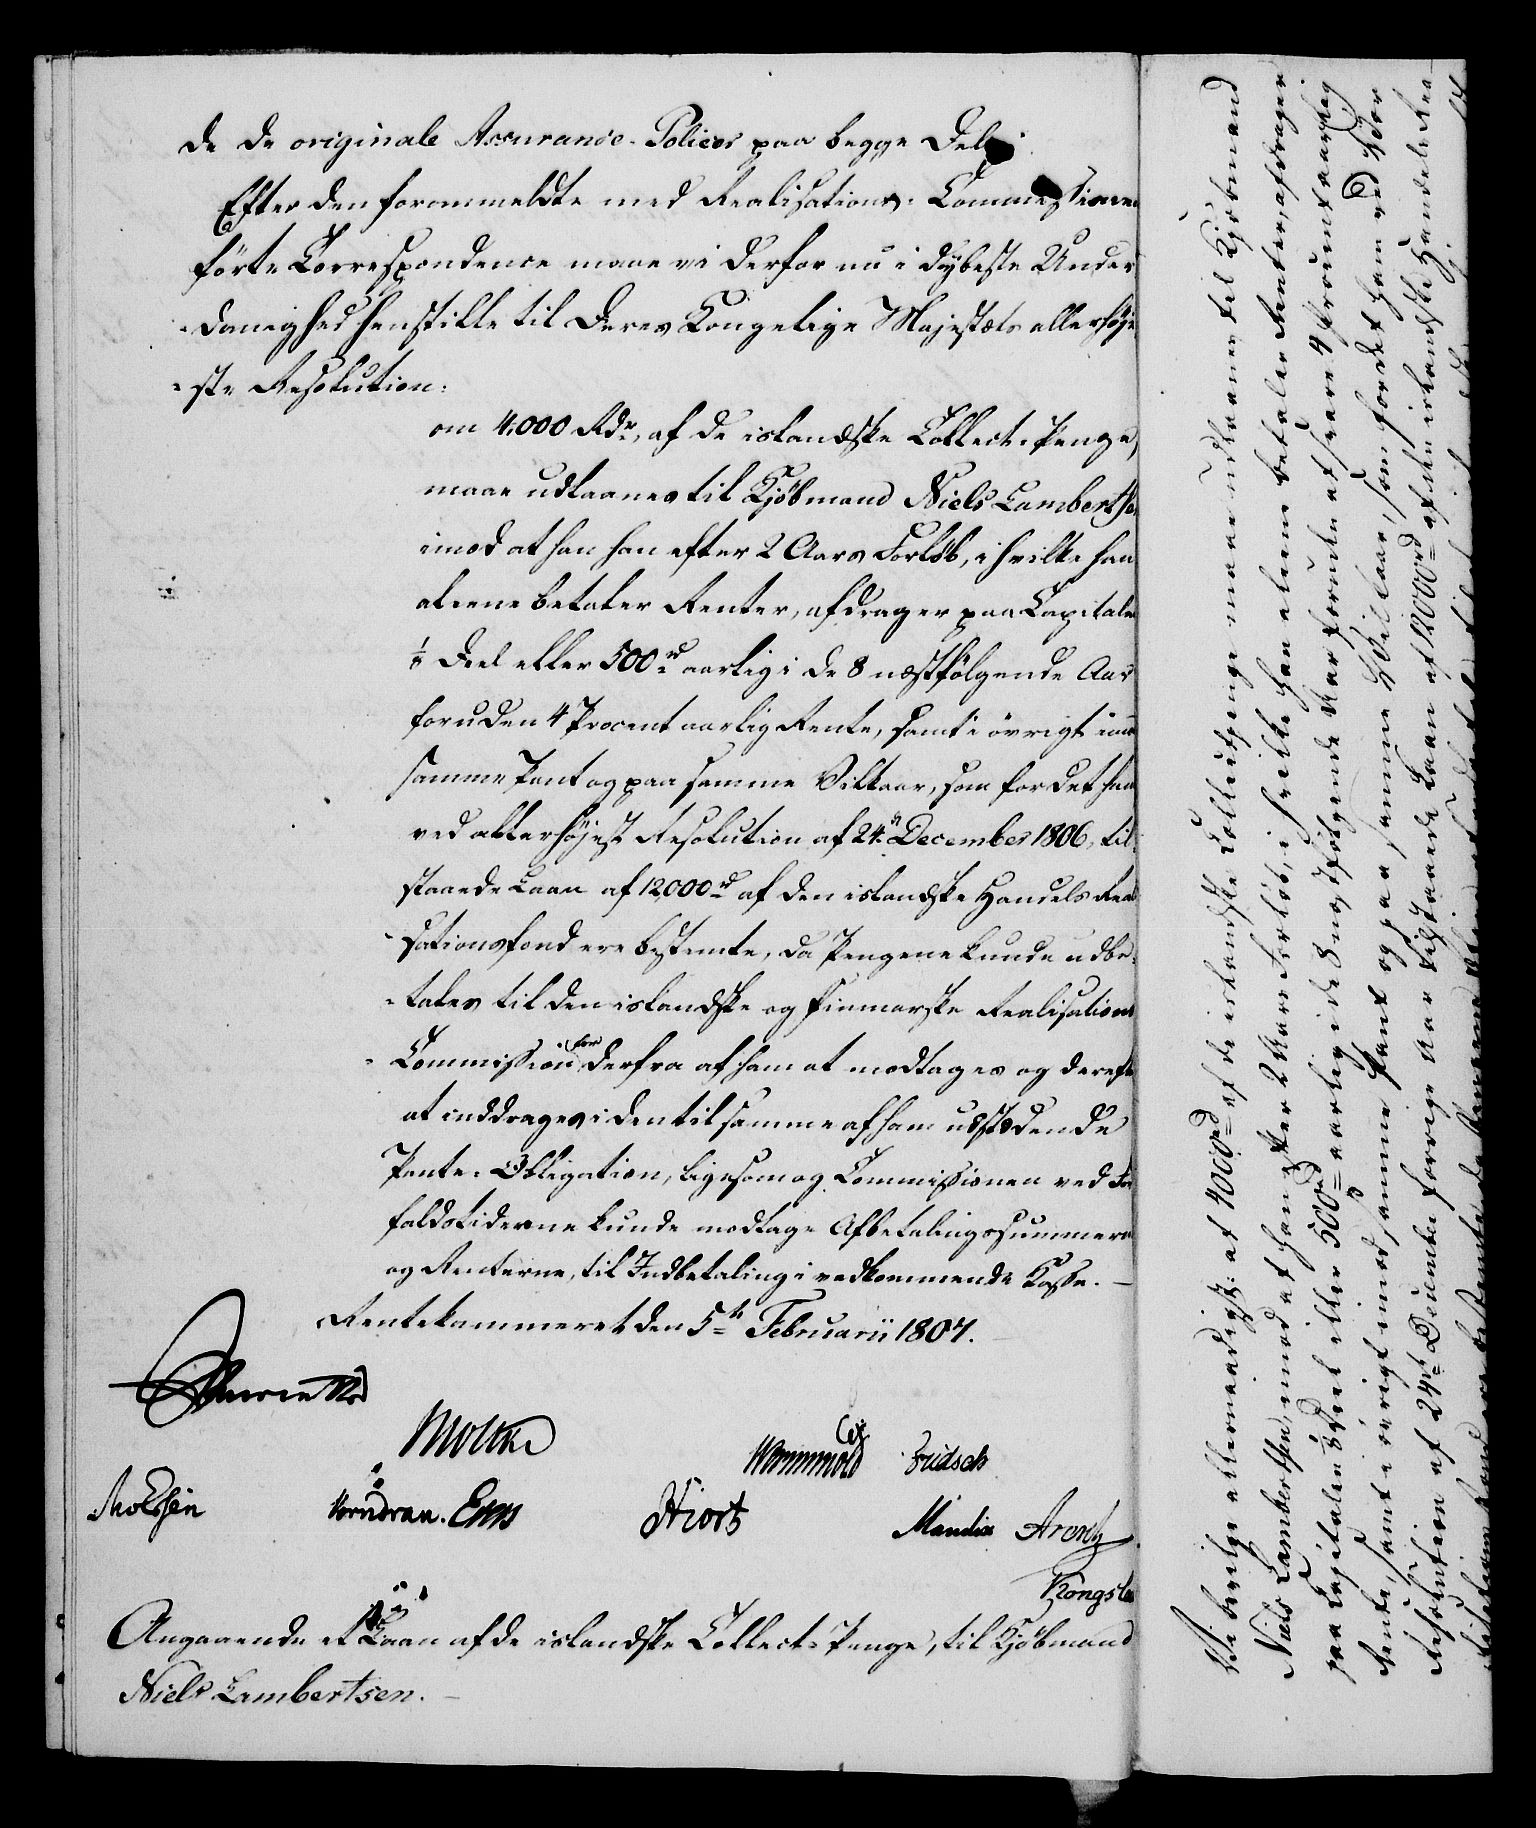 de de originale Assurance-Policer paa begge Dele.
Efter den forommeldte med Realisations-Commissionen
förte Correspondence maae vi derfor nu i dybeste Under-
-danighed henstille til Deres Kongelige Majestæts allerhöje-
-ste Resolution:
om 4,000 Rdr, af de islandske Collect-Penge,
maae udlaanes til Kjöbmand Niels Lambertsen
imod at han han efter 2 Aars Forlöb, i hvilke han
alene betaler Renter, afdrager paa Capitalen
1/8 Deel eller 500 rd aarlig i de 8 næstfölgende Aar
foruden 4 Procent aarlig Rente, samt i övrigt imod
samme Pant og paa samme Vilkaar, som for det ham
ved allerhöjest Resolution af 24. December 1806, til-
staaede Laan af 12,000 rd af den islandske Handels Reali-
-sationsfond ere bestemte, da Pengene kunde udbe-
-tales til den islandske og finmarkske Realisations
-Commission for derfra af ham at modtages og derefter
at inddrages i den til samme af ham udstædende
Pante-Obligation, ligesom og Commissionen ved For-
faldstiderne kunde modtage Afbetalingssummerne
og Renterne, til Indbetaling i vedkommende Kasse. —
Rentekammeret den 5te Februarii 1807.
Moltke
Wormskiold Fridsch
Hiort
Mandix Arentz
Kongslev
Angaaende et Laan af de islandske Collect-Penge, til Kjöbmand
Niels Lambertsen. —
Vi bevilge allernaadigst: at 4000 rd af de islandske Collectpenge maae udlaanes til Kjöbmand
Niels Lambertsen, imod at han efter 2 Aars Forlöb, i hvilke han alene betaler Renter, afdrager
paa Capitalen 1/8 Deel eller 500 rd aarlig i de 8 næstfölgende Aar foruden at svare 4 Procent aarlig
Rente, samt i övrigt imod samme Pant og paa samme Vilkaar, som for det ham ved Vor
Resolution af 24de December forrige Aar tilstaaede Laan af 12000 rd af den islandske Handels Rea-